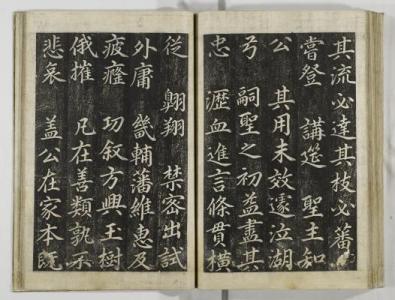 其流必達其技必蕃
嘗登 講筵 聖主知
公 其用未效遽泣湖
弓 嗣聖之初益盡其
忠 瀝血進言條貫橫
從 翱翔 禁密出試
外庸 畿輔藩維惠及
疲癃 功叙方興玉樹
俄摧 凡在善類孰不
悲哀 盖公在家本既